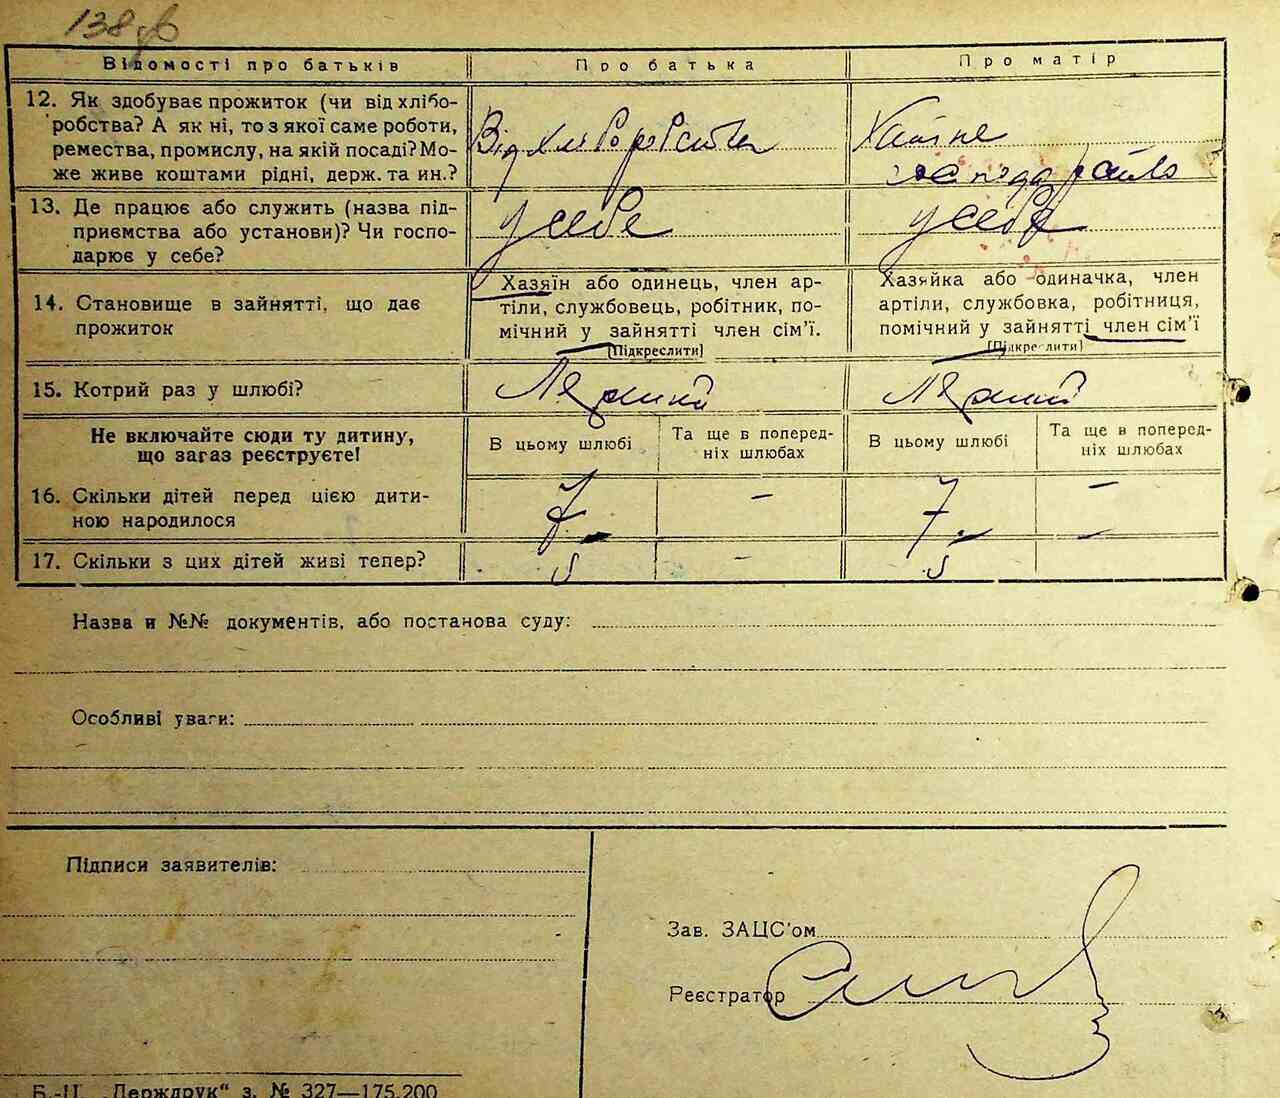 138
Відомості про батьків
Про батька
Про матір
12. Як здобуває прожиток (чи від хлібо-
робства? А як ні, то з якої саме роботи,
ремества, промислу, на якій посаді? Мо-
же живе коштами рідні, держ. та ин.?
Від хліборобства
Хатне
господарство
13. Де працює або служить (назва під-
приємства або установи)? Чи госпо-
дарює у себе?
у себе
у себе
14. Становище в зайнятті, що дає
прожиток
Хазяїн або одинець, член ар-
тіли, службовець, робітник, по-
мічний у зайнятті член сім'ї.
[Підкреслити]
Хазяйка або одиначка, член
артіли, службовка, робітниця,
помічний у зайнятті член сім'ї
[Підкреслити]
15. Котрий раз у шлюбі?
Первий
Первий
Не включайте сюди ту дитину,
що загаз реєструєте!
В цьому шлюбі
Та ще в поперед-
ніх шлюбах
В цьому шлюбі
Та ще в поперед-
ніх шлюбах
16. Скільки дітей перед цією дити-
ною народилося
7 – 7 –
17. Скільки з цих дітей живі тепер?
5 – 5 –
Назва и №№ документів, або постанова суду:
Особливі уваги:
Підписи заявителів:
Зав. ЗАЦС'ом
Реєстратор
Б.-Ц. „Держдрук“ з. № 327—175.200